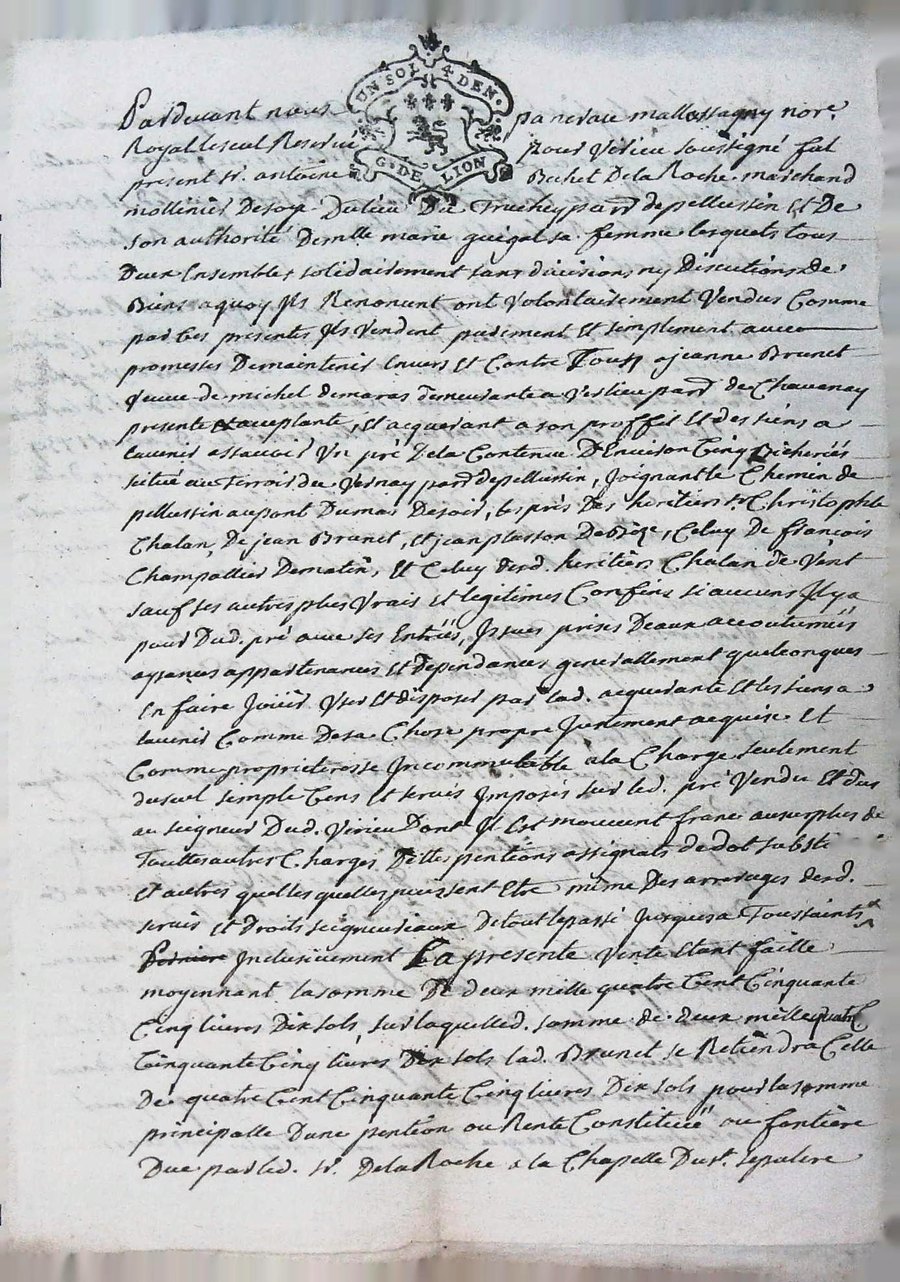 UN SOL 4 DEN.
G. DE LION
Pardevant nous pancrace mallassagny nore.
Royal le seul Reservé pour Virieu soussigné fut
present sr. antoine Buhet De la Roche marchand
mollinier De soye Du lieu Du Truchey parr. de pellussin Et De
son authorité Demlle marie guigal sa femme lesquels tous
Deux Ensembles solidairement sans divisions ny Discutions de
Biens a quoy Ils Renonent ont Volontairement Vendus Comme
par Ces presentes Ils Vendent purément Et simplement avec
promesses De maintenir Envers Et Contre Tous a jeanne Brunet
Veuve de michel demaras demeurante a Virieu parr. de Chavanay
presente Et acceptante, Et acquerant a son proffit Et des siens a
lavenir assavoir Un pré De la Contenue D'Environ Cinq Bicherées
situé au terroir du Vernay parr. de pellussin, Joignant le Chemin de
pellussin au pont Dumas De soir, les prés Des heritiers sr. Christophle
Chalan, De jean Brunet, et jean plasson De Bize, Celuy De francois
Champallier De matin, Et Celuy desd. heritiers Chalan de Vent
sauf ses autres plus Vrais Et legitimes Confins si aucuns Il y a
pour Dud. pré avec ses Entrées, Issues prises D'eaux accoutumées
aysances appartenances Et Dependances generallement quelconques
En faire Joüir User Et disposer par lad. acquerante Et les siens a
lavenir Comme De sa Chose propre Jurement acquise Et
Comme proprieteresse Incommutable a la Charge seulement
du seul simple Cens Et servis Imposés sur led. pré Vendu Et dus
au seigneur Dud. Virieu Dont Il Est mouvent franc au surplus de
Touttes autres Charges, Dettes pentions assignats de dot substi
Et autres quelles quelles puissent Etre même Des arrerages desd.
servis Et Droits seigneuriaux De tout le passé Jusques a Toussaints
Derniere Inclusivement La presente Vente Etant faitte
moyennant la somme De deux mille quatre Cent Cinquante
Cinq livres Dix sols, sur laquelle d. somme de deux mille quatre C
Cinquante Cinq livres Dix sols lad. Brunet se Retiendra Celle
De quatre Cent Cinquante Cinq livres Dix sols pour la somme
principalle D'une pention ou Rente Constituée ou fontiére
Due par led. sr. De la Roche a la Chapelle Du st. sepulcre